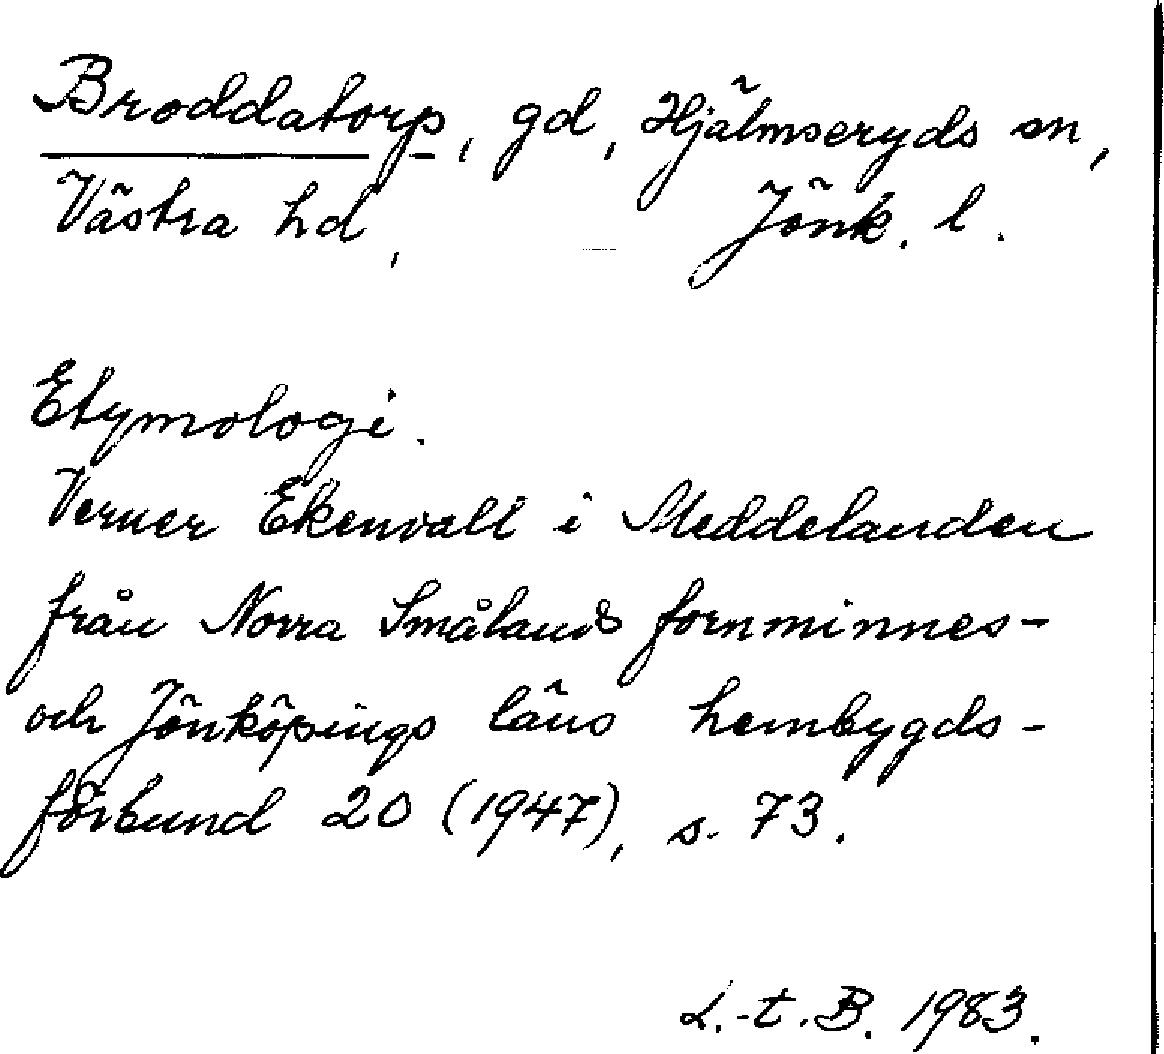 Broddatorp, gd, Hjälmseryds sn,
Västra hd, Jönk. l.
Etymologi.
Verner Ekenvall i Meddelanden
från Norra Smålands fornminnes-
och Jönköpings läns hembygds-
förbund 20 (1947), s. 73.
L.-t. B. 1983.